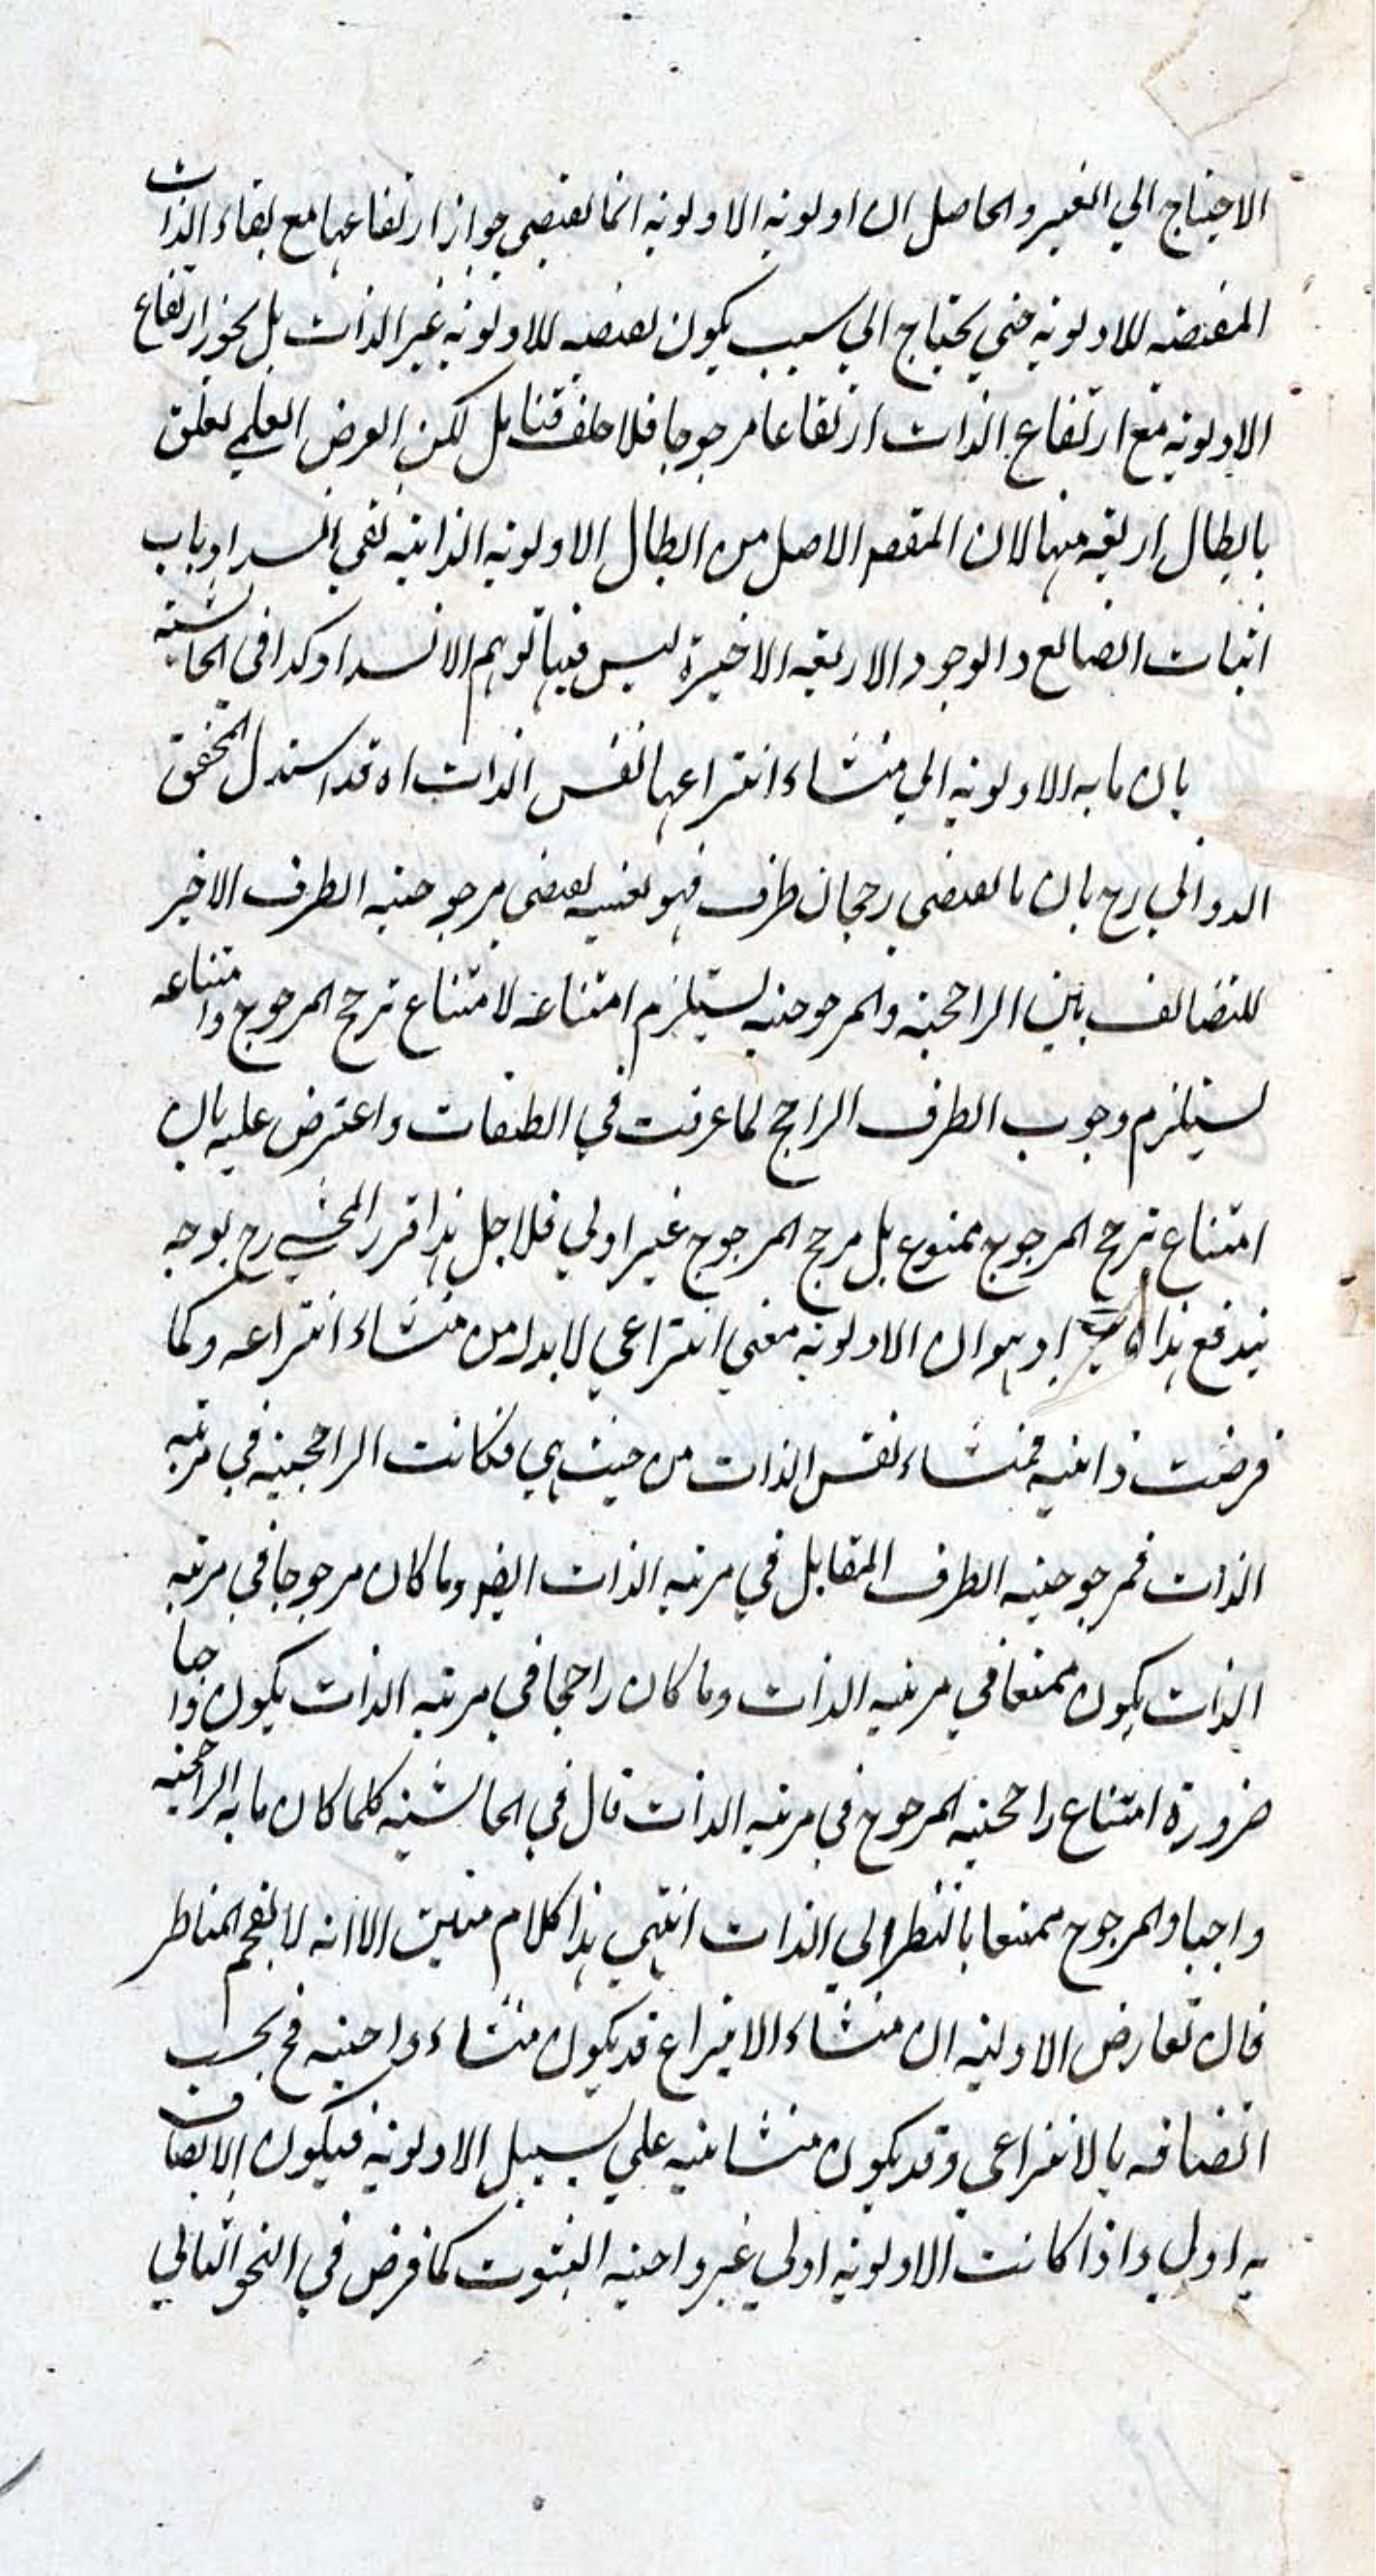 الاحتياج الي الغير والحاصل ان اولوية الاولوية انما يقتضي جواز ارتفاعها مع بقاء الذات
المقتضيه للاولوية حتي يحتاج الي سبب يكون لقتضيه للاولوية غير الذات بل يجوز ارتفاع
الاولوية مع ارتفاع الذات ارتفاعا مرجوحا فلا خلف فتامل لكن الغرض العلمي تعلق
بابطال اربعة منها لان المقصم الاصل من ابطال الاولوية الذاتية نفي انسداد باب
اثبات الصانع والوجود الاربعة الاخيرة ليس فيها توهم الانسداد كذا في الحاشية
بان ما به الاولوية الي منشاء انتزاعها نفس الذات اه قد استدل المحقق
الدواني رح بان ما يقتضي رجحان طرف فهو بعينه يقتضي مرجوحية الطرف الاخير
للتضائف بين الراجحية والمرجوحية يستلزم امتناعه لامتناع ترجح المرجوح وامتناعه
يستلزم وجوب الطرف الراجح لما عرفت في الطبقات واعترض عليه بان
امتناع ترجح المرجوح ممنوع بل مرجح المرجوح غير اولي فلاجل هذا قرر المحشي رح بوجه
يندفع هذا وهو ان الاولوية معني انتزاعي لابد له من منشاء انتزاعه وكما
فرضت ذاتية فمنشاء نفس الذات من حيث هي فكانت الراجحية في مرتبه
الذات فمرجوحية الطرف المقابل في مرتبه الذات ايضو وما كان مرجوحا في مرتبه
الذات يكون ممتنعا في مرتبه الذات وما كان راجحا في مرتبه الذات يكون واجبا
ضرورة امتناع راجحية المرجوح في مرتبه الذات قال في الحاشية كلما كان ما به الراجحية
واجبا والمرجوح ممتنعا بالنظر الي الذات انتهي هذا كلام متين الا انه لا يفحم المناظر
فان تعارض الاولية ان منشاء الانتزاع قد يكون منشاء واجبية فح يجب
اتصافه بالانتزاعي وقد يكون منشائيه علي سبيل الاولوية فيكون الاتصاف
به اولي واذا كانت الاولوية اولي غير واجبة الثبوت كما فرض في النحو الثاني